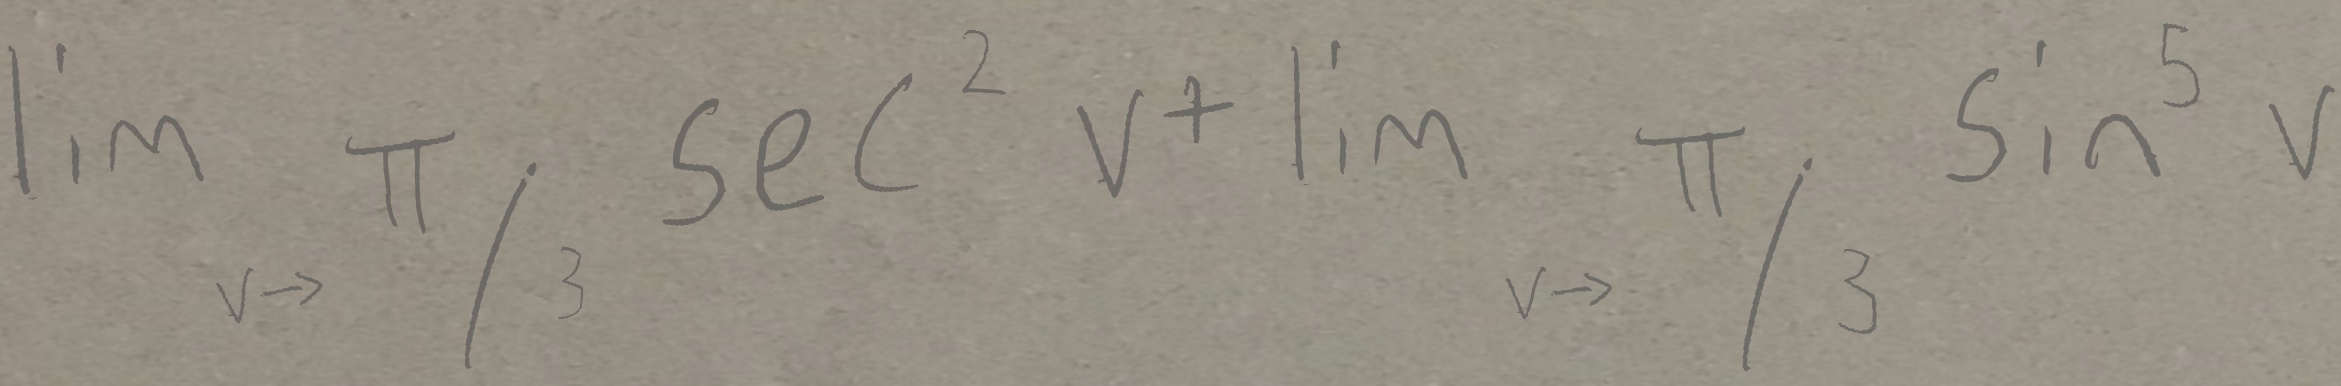 \lim_{v \to \pi/3} \sec^2 v + \lim_{v \to \pi/3} \sin^5 v